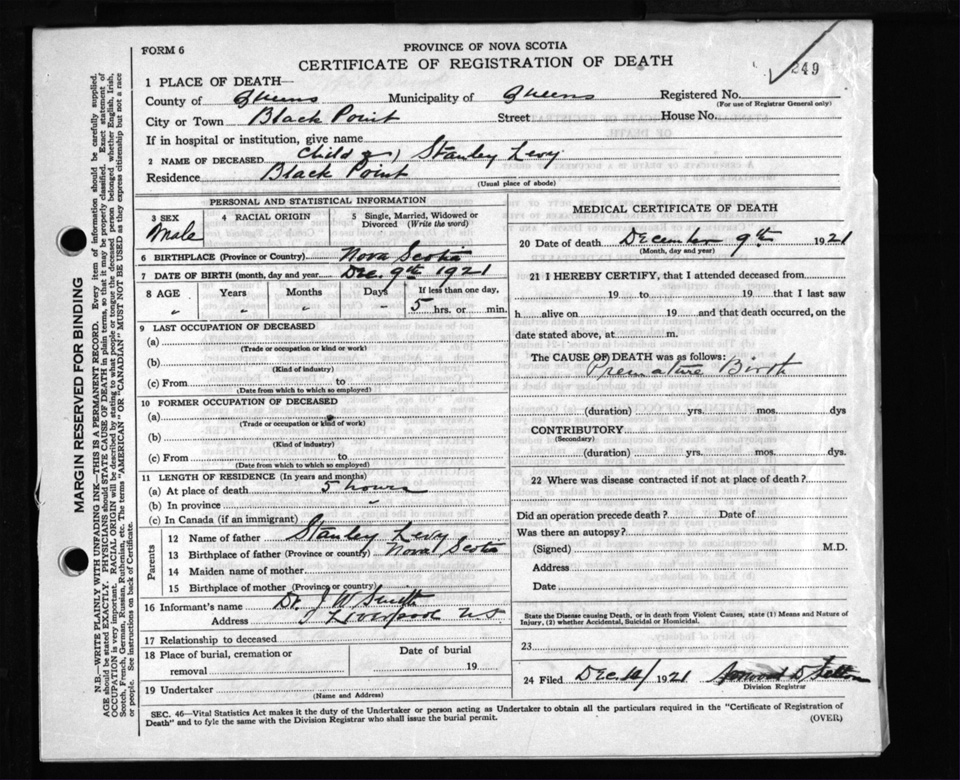 FORM 6
PROVINCE OF NOVA SCOTIA
CERTIFICATE OF REGISTRATION OF DEATH
249
1 PLACE OF DEATH—
County of Queens Municipality of Queens Registered No.
(For use of Registrar General only)
City or Town Black Point Street House No.
If in hospital or institution, give name
2 NAME OF DECEASED Child of) Stanley Levy
Residence Black Point
(Usual place of abode)
PERSONAL AND STATISTICAL INFORMATION
3 SEX Male
4 RACIAL ORIGIN
5 Single, Married, Widowed or Divorced (Write the word)
6 BIRTHPLACE (Province or Country) Nova Scotia
7 DATE OF BIRTH (month, day and year) Dec. 9th 1921
8 AGE Years Months Days If less than one day,
" " " " 5 hrs. or min.
9 LAST OCCUPATION OF DECEASED
(a)
(Trade or occupation or kind or work)
(b)
(Kind of industry)
(c) From to
(Date from which to which so employed)
10 FORMER OCCUPATION OF DECEASED
(a)
(Trade or occupation or kind of work)
(b)
(Kind of industry)
(c) From to
(Date from which to which so employed)
11 LENGTH OF RESIDENCE (In years and months)
(a) At place of death 5 hours
(b) In province "
(c) In Canada (if an immigrant)
Parents
12 Name of father Stanley Levy
13 Birthplace of father (Province or country) Nova Scotia
14 Maiden name of mother
15 Birthplace of mother (Province or country)
16 Informant's name Dr. J W Smith
Address Liverpool NS
17 Relationship to deceased
18 Place of burial, cremation or removal
Date of burial
19
19 Undertaker
(Name and Address)
MEDICAL CERTIFICATE OF DEATH
20 Date of death December 9th 1921
(Month, day and year)
21 I HEREBY CERTIFY, that I attended deceased from
19 to 19 that I last saw
h alive on 19 and that death occurred, on the
date stated above, at m.
The CAUSE OF DEATH was as follows:
Premature Birth
(duration) yrs. mos. dys
CONTRIBUTORY
(Secondary)
(duration) yrs. mos. dys.
22 Where was disease contracted if not at place of death?
Did an operation precede death? Date of
Was there an autopsy?
(Signed) M.D.
Address
Date
State the Disease causing Death, or in death from Violent Causes, state (1) Means and Nature of
Injury, (2) whether Accidental, Suicidal or Homicidal.
23
24 Filed Dec. 1921
Division Registrar
SEC. 46—Vital Statistics Act makes it the duty of the Undertaker or person acting as Undertaker to obtain all the particulars required in the "Certificate of Registration of
Death" and to fyle the same with the Division Registrar who shall issue the burial permit.
(OVER)
MARGIN RESERVED FOR BINDING
N.B.—WRITE PLAINLY WITH UNFADING INK—THIS IS A PERMANENT RECORD. Every item of information should be carefully supplied.
AGE should be stated EXACTLY. PHYSICIANS should STATE CAUSE OF DEATH in plain terms, so that it may be properly classified. Exact statement of
OCCUPATION is very important. RACIAL ORIGIN will be described by stating to what people or tongue the deceased person belonged whether English, Irish,
Scotch, French, German, Russian, Ruthenian, etc. The terms "AMERICAN" OR "CANADIAN" MUST NOT BE USED as they express citizenship but not a race
or people. See instructions on back of Certificate.